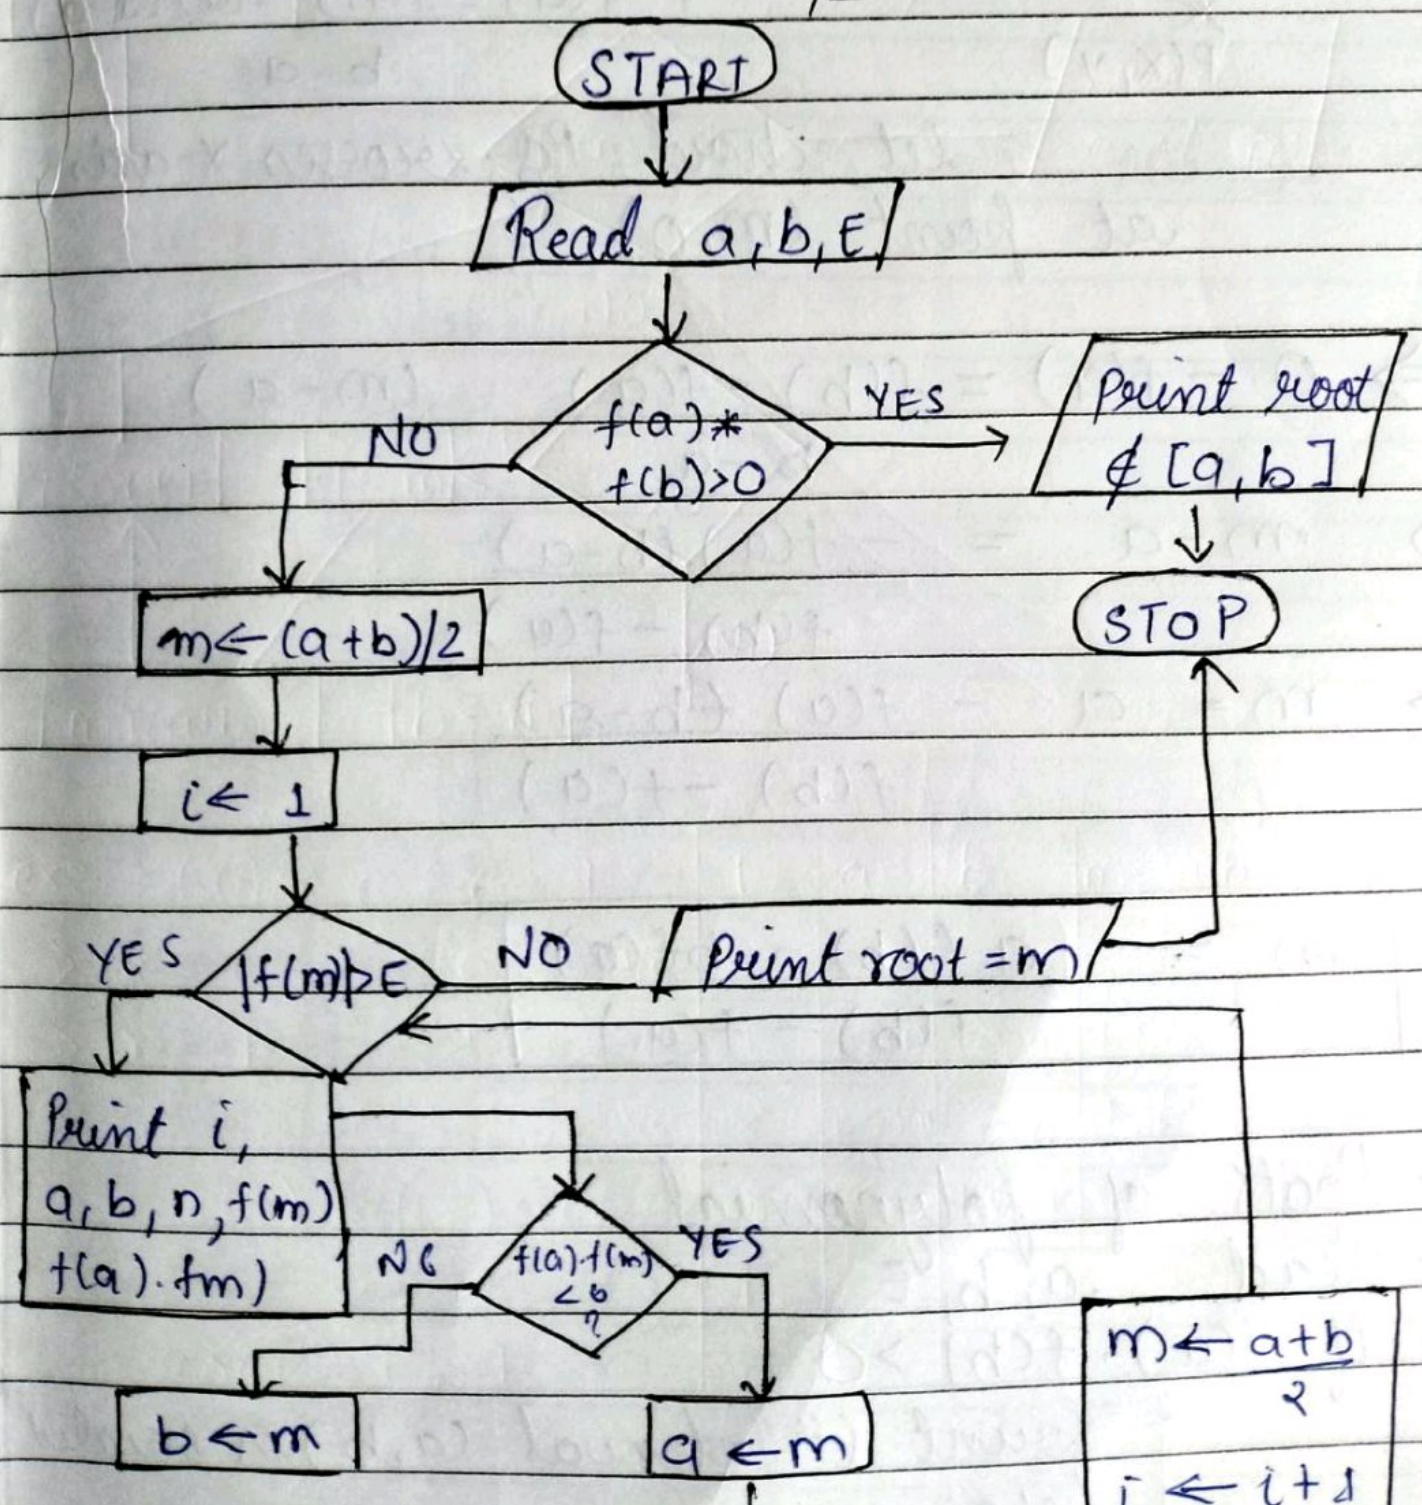 START
Read a, b, E
f(a) *
f(b) > 0
YES
NO
Print root
∉ [a, b]
STOP
m ← (a+b)/2
i ← 1
|f(m)|>E
YES
NO
Print root = m
Print i,
a, b, n, f(m)
f(a). fm)
f(a).f(m)
< 0
?
NO
YES
b ← m
a ← m
m ← a+b
2
i ← i+1